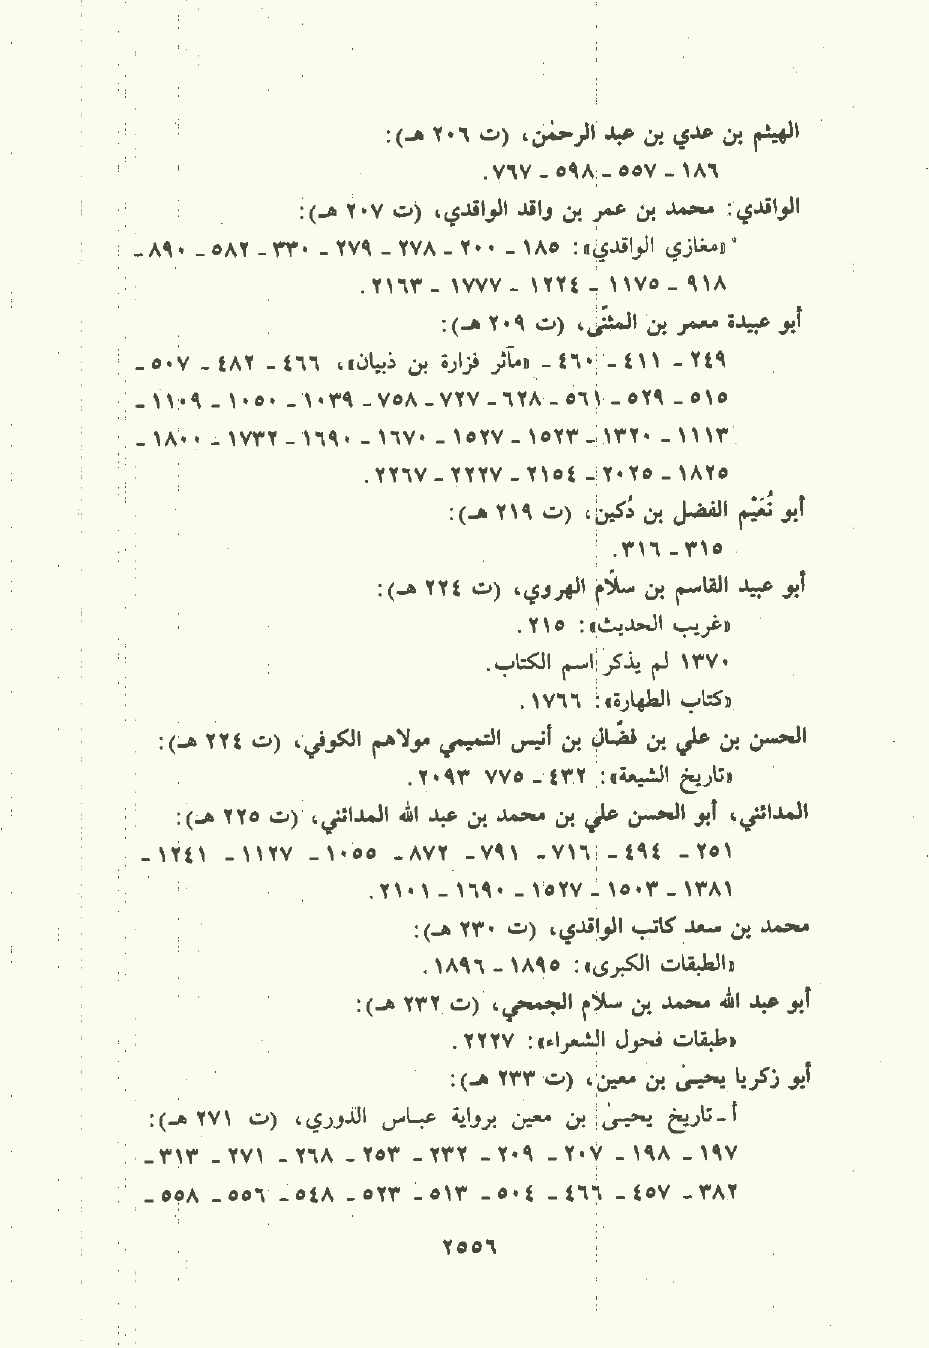 الهيثم بن عدي بن عبد الرحمٰن، (ت ٢٠٦ هـ):
١٨٦ ـ ٥٥٧ ـ ٥٩٨ ـ ٧٦٧.
الواقدي: محمد بن عمر بن واقد الواقدي، (ت ٢٠٧ هـ):
«مغازي الواقدي»: ١٨٥ ـ ٢٠٠ ـ ٢٧٨ ـ ٢٧٩ ـ ٣٣٠ ـ ٥٨٢ ـ ٨٩٠ ـ
٩١٨ ـ ١١٧٥ ـ ١٢٢٤ ـ ١٧٧٧ ـ ٢١٦٣.
أبو عبيدة معمر بن المثنّى، (ت ٢٠٩ هـ):
٢٤٩ ـ ٤١١ ـ ٤٦٠ ـ «مآثر فزارة بن ذبيان»، ٤٦٦ ـ ٤٨٢ ـ ٥٠٧ ـ
٥١٥ ـ ٥٢٩ ـ ٥٦١ ـ ٦٢٨ ـ ٧٢٧ ـ ٧٥٨ ـ ١٠٣٩ ـ ١٠٥٠ ـ ١١٠٩ ـ
١١١٣ ـ ١٣٢٠ ـ ١٥٢٣ ـ ١٥٢٧ ـ ١٦٧٠ ـ ١٦٩٠ ـ ١٧٣٢ ـ ١٨٠٠ ـ
١٨٢٥ ـ ٢٠٢٥ ـ ٢١٥٤ ـ ٢٢٢٧ ـ ٢٢٦٧.
أبو نُعَيْم الفضل بن دُكين، (ت ٢١٩ هـ):
٣١٥ ـ ٣١٦.
أبو عبيد القاسم بن سلّام الهروي، (ت ٢٢٤ هـ):
«غريب الحديث»: ٢١٥.
١٣٧٠ لم يذكر اسم الكتاب.
«كتاب الطهارة»: ١٧٦٦.
الحسن بن علي بن فضّال بن أنيس التميمي مولاهم الكوفي، (ت ٢٢٤ هـ):
«تاريخ الشيعة»: ٤٣٢ ـ ٧٧٥ ٢٠٩٣.
المدائني، أبو الحسن علي بن محمد بن عبد الله المدائني، (ت ٢٢٥ هـ):
٢٥١ ـ ٤٩٤ ـ ٧١٦ ـ ٧٩١ ـ ٨٧٢ ـ ١٠٥٥ ـ ١١٢٧ ـ ١٢٤١ ـ
١٣٨١ ـ ١٥٠٣ ـ ١٥٢٧ ـ ١٦٩٠ ـ ٢١٠١.
محمد بن سعد كاتب الواقدي، (ت ٢٣٠ هـ):
«الطبقات الكبرى»: ١٨٩٥ ـ ١٨٩٦.
أبو عبد الله محمد بن سلام الجمحي، (ت ٢٣٢ هـ):
«طبقات فحول الشعراء»: ٢٢٢٧.
أبو زكريا يحيىٰ بن معين، (ت ٢٣٣ هـ):
أ ـ تاريخ يحيىٰ بن معين برواية عباس الدوري، (ت ٢٧١ هـ):
١٩٧ ـ ١٩٨ ـ ٢٠٧ ـ ٢٠٩ ـ ٢٣٢ ـ ٢٥٣ ـ ٢٦٨ ـ ٢٧١ ـ ٣١٣ ـ
٣٨٢ ـ ٤٥٧ ـ ٤٦٦ ـ ٥٠٤ ـ ٥١٣ ـ ٥٢٣ ـ ٥٤٨ ـ ٥٥٦ ـ ٥٥٨ ـ
٢٥٥٦